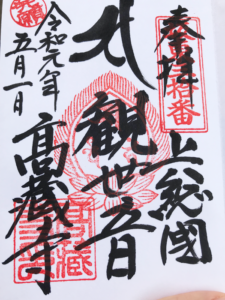 奉拝
上総國
観世音
高蔵寺
令和元年
五月一日